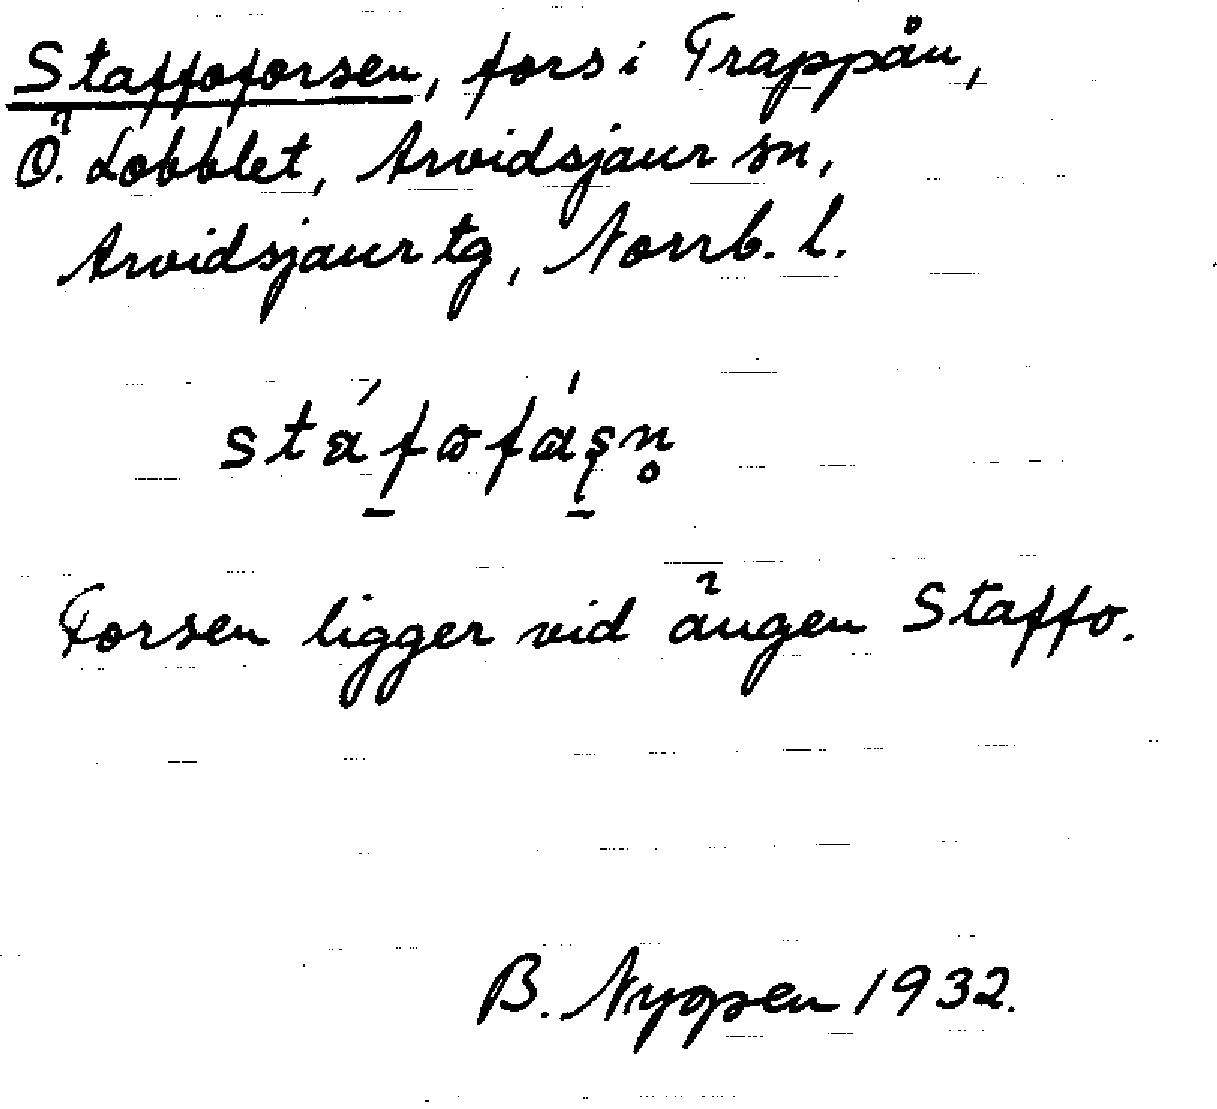 Staffoforsen, fors i Trappån,
Ö. Lobblet, Arvidsjaur sn,
Arvidsjaur tg, Norrb. l.
Forsen ligger vid ängen Staffo.
B. 1932.